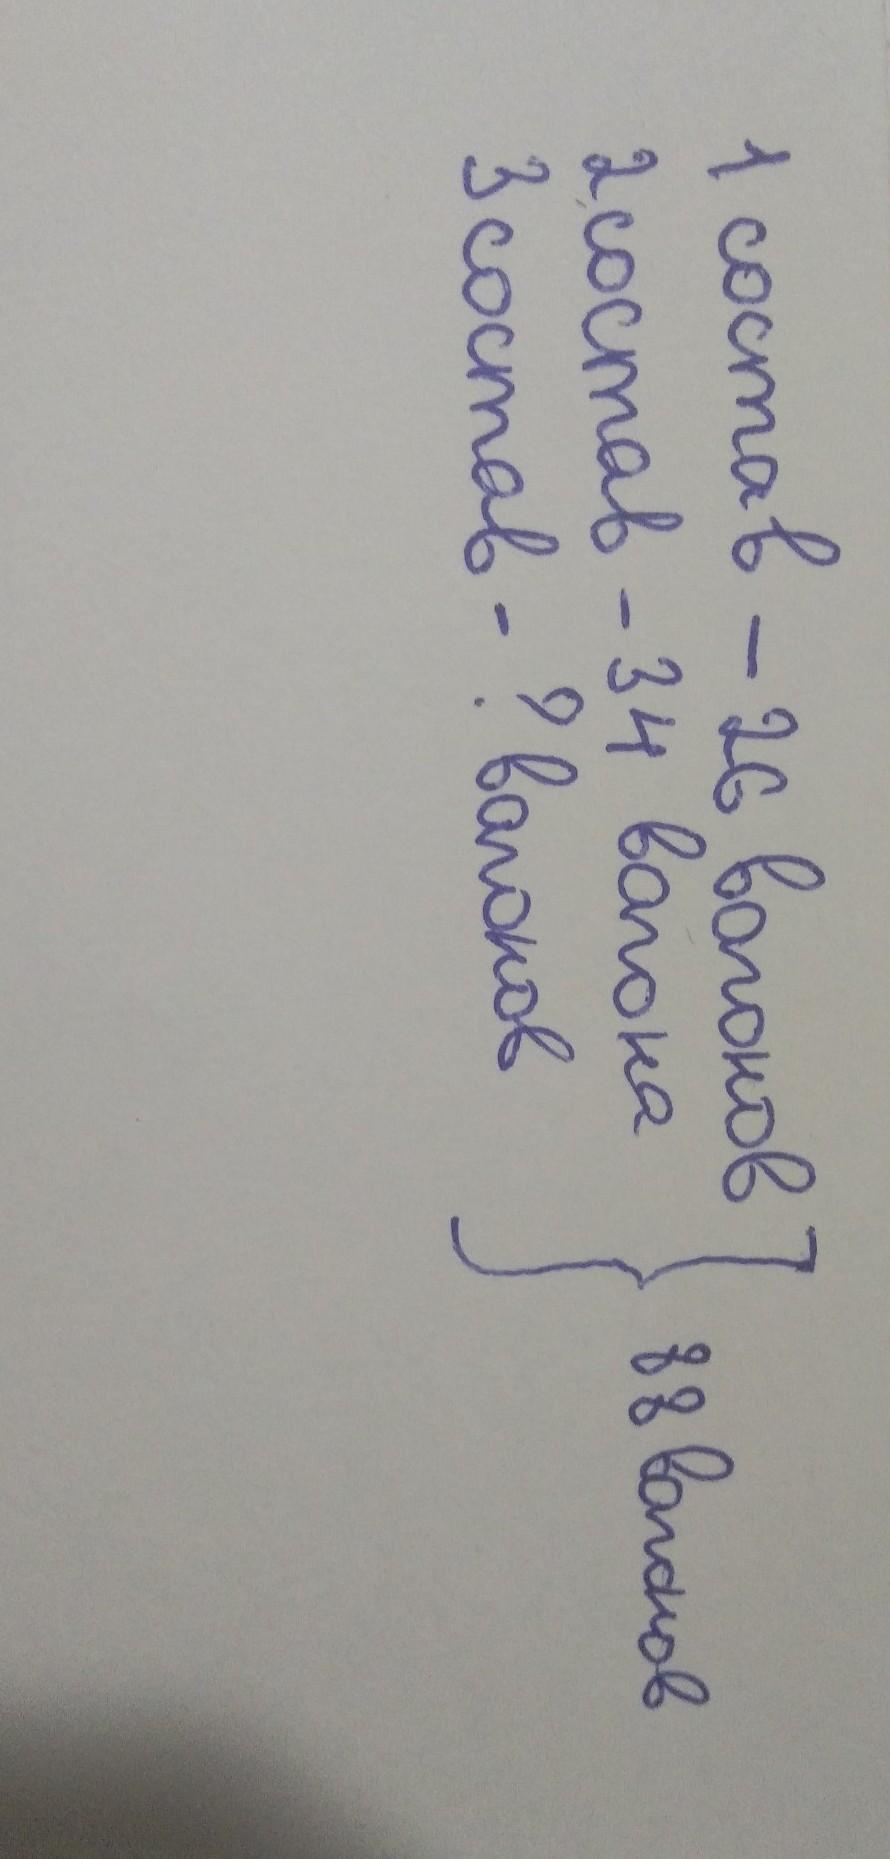 1 состав – 26 вагонов
2 состав – 34 вагона
3 состав - ? вагонов
} 88 вагонов